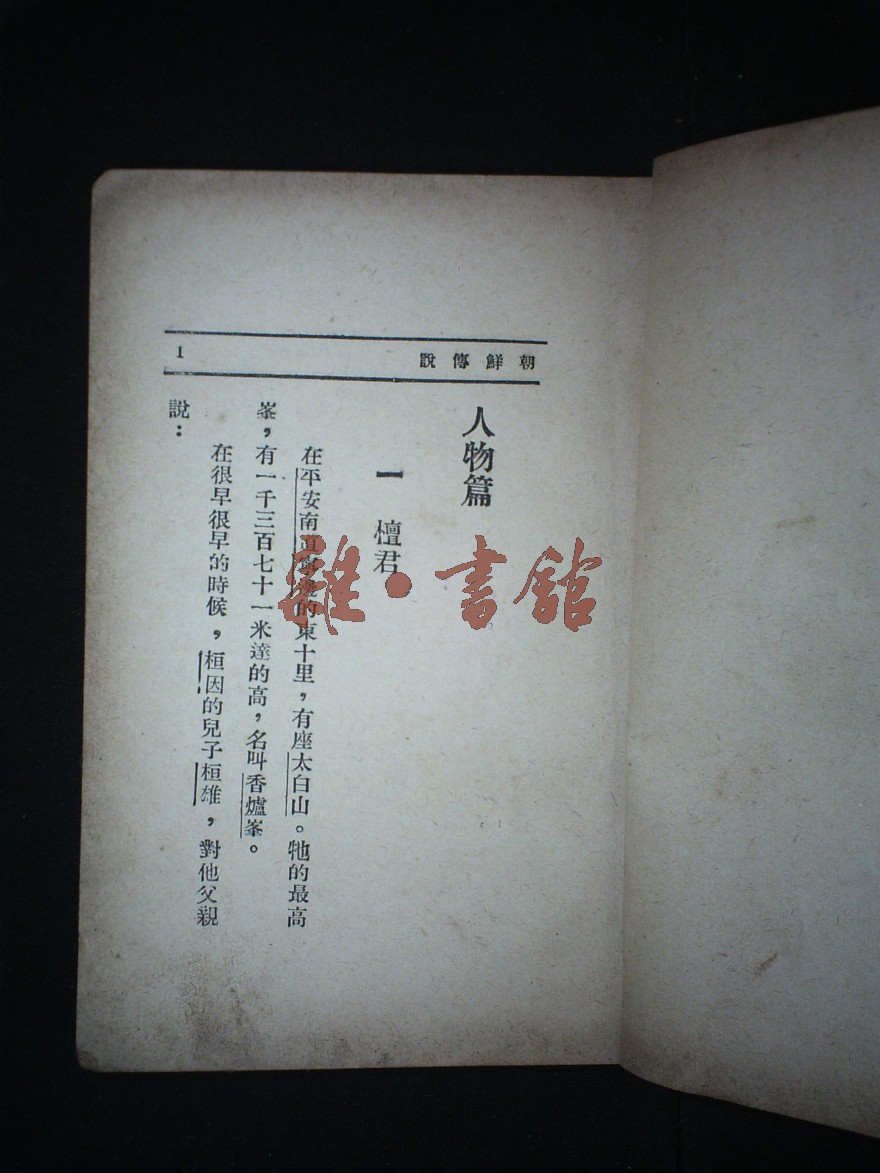 朝鮮傳說
1
人物篇
一 檀君
在平安南道寧邊的東十里，有座太白山。牠的最高
峯，有一千三百七十一米達的高，名叫香爐峯。
在很早很早的時候，桓因的兒子桓雄，對他父親
說：
書館